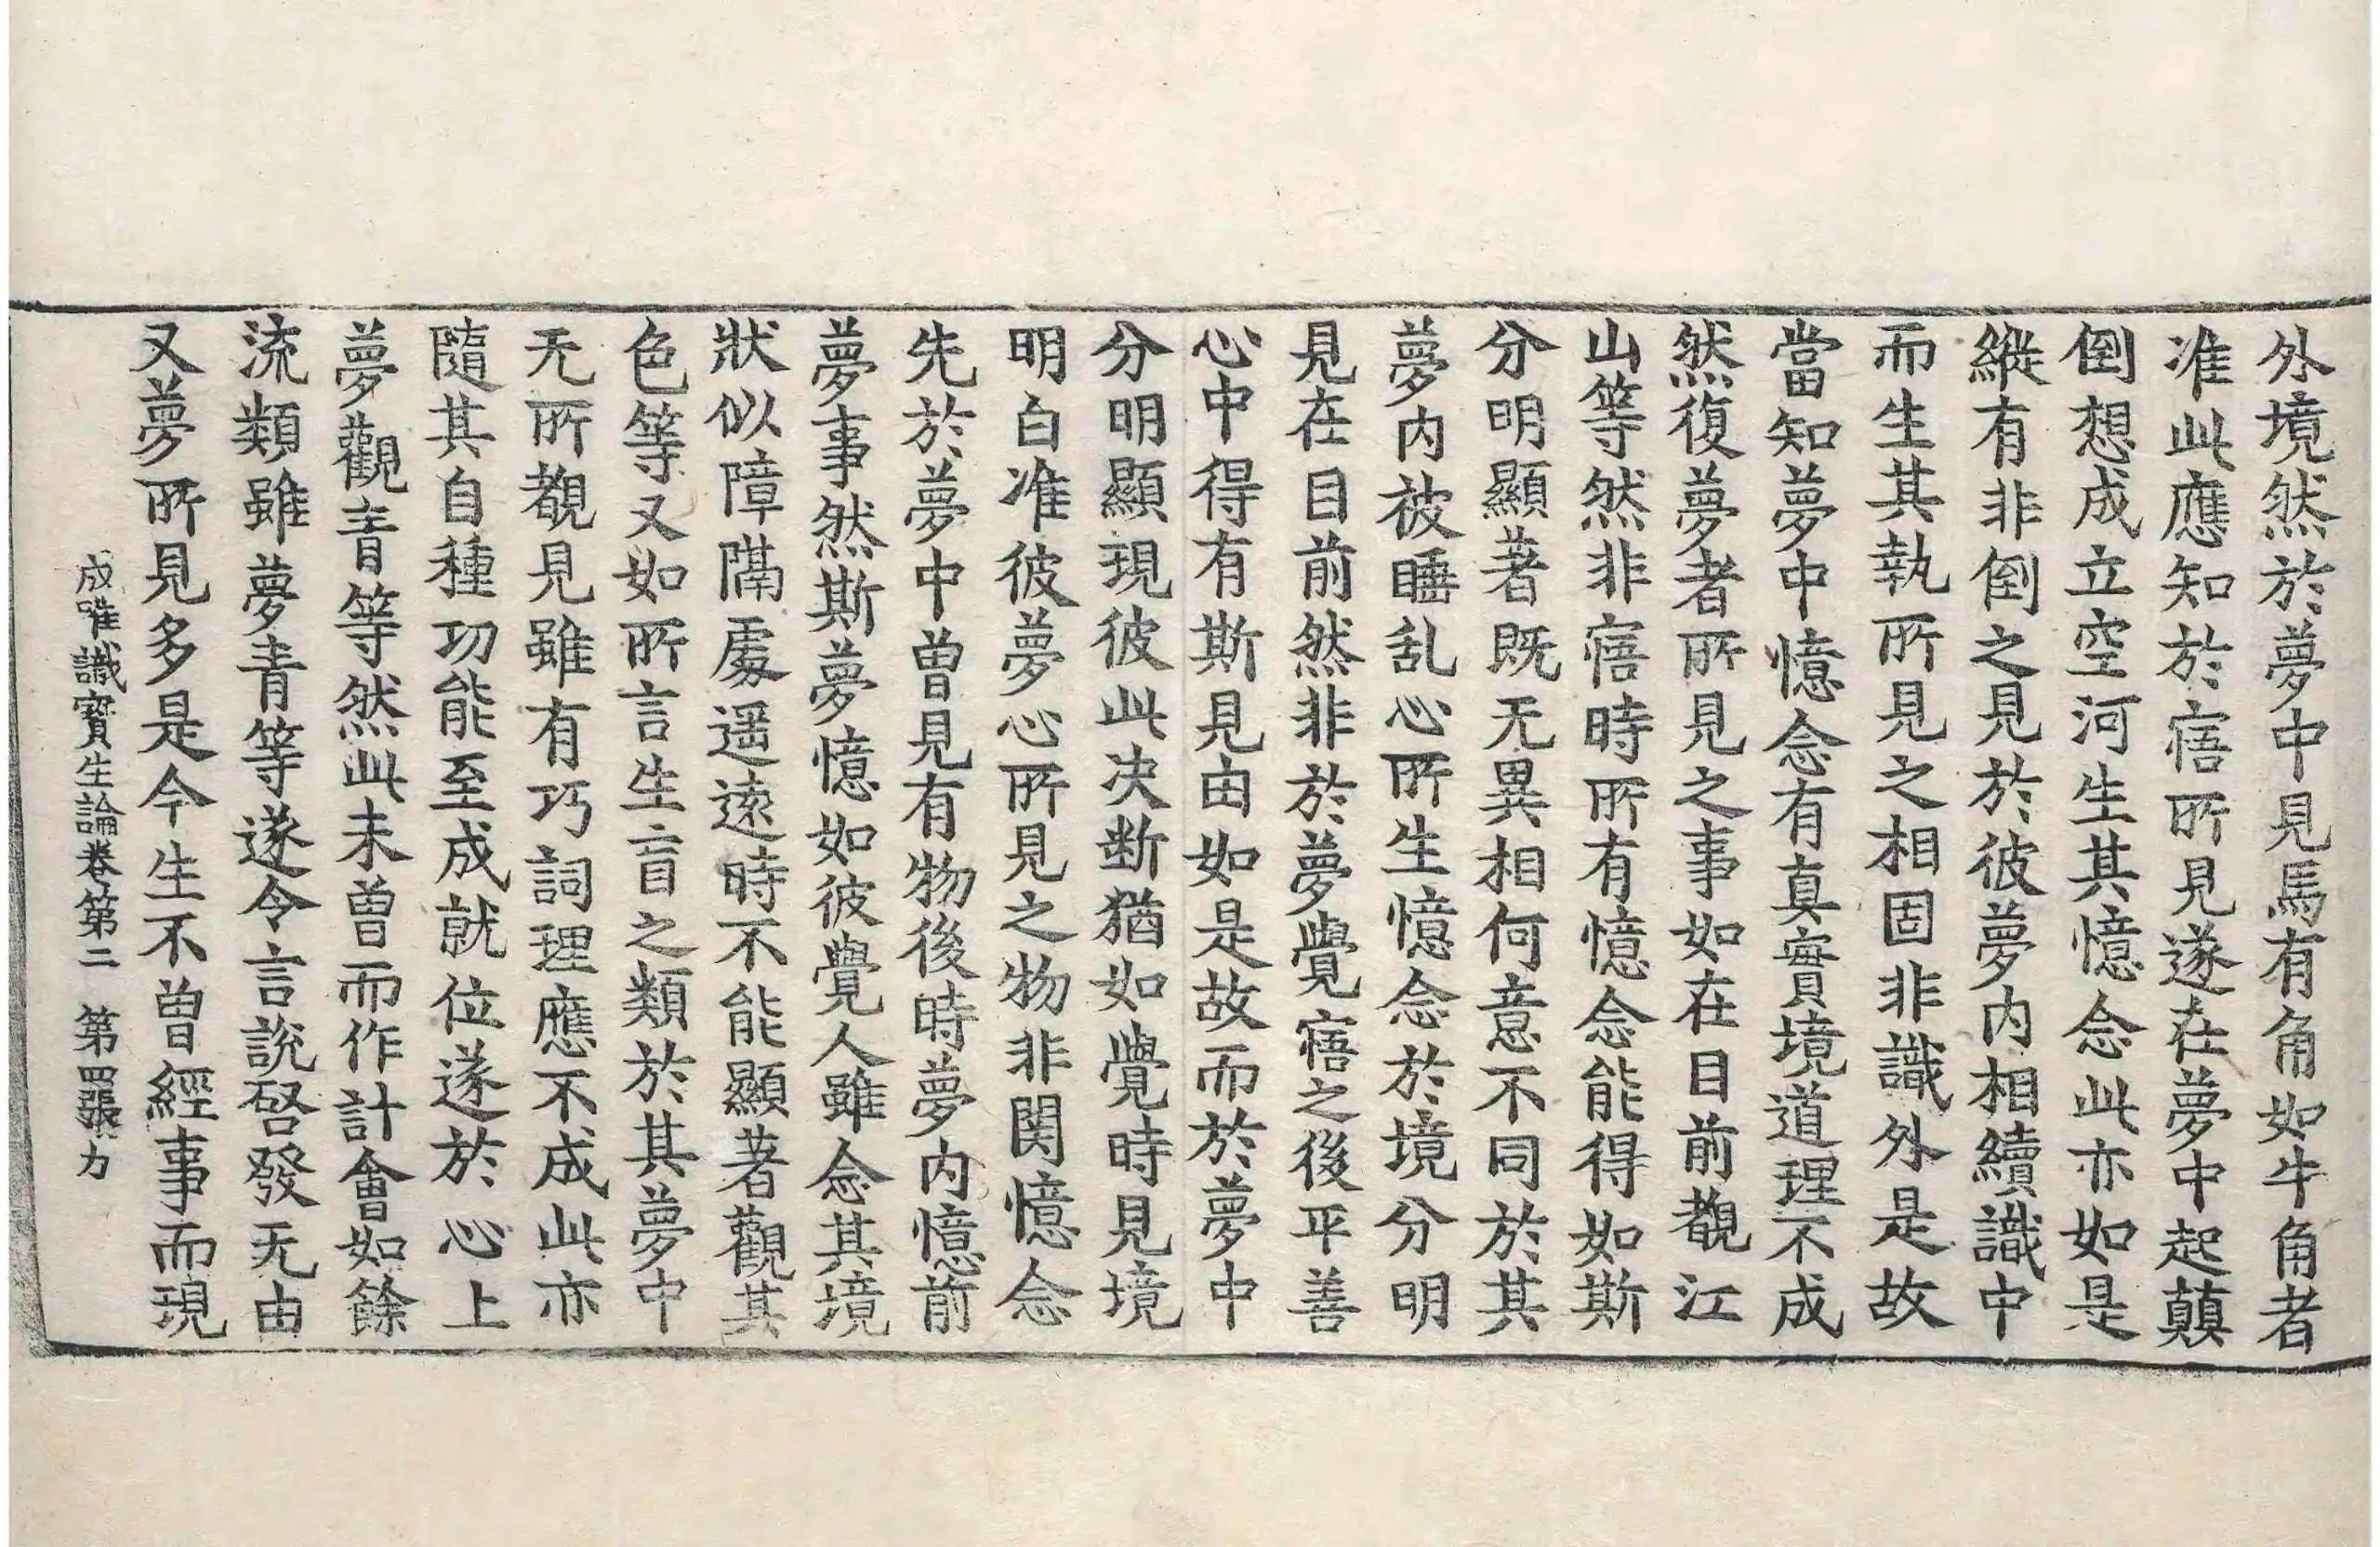 外境然於夢中見馬有角如牛角者
准此應知於寤所見遂在夢中起顛
倒想成立空河生其憶念此亦如是
縱有非倒之見於彼夢內相續識中
而生其執所見之相固非識外是故
當知夢中憶念有真實境道理不成
然復夢者所見之事如在目前覩江
山等然非寤時所有憶念能得如斯
分明顯著既无異相何意不同於其
夢內被睡乱心所生憶念於境分明
見在目前然非於夢覺寤之後平善
心中得有斯見由如是故而於夢中
分明顯現彼此决断猶如覺時見境
明白准彼夢心所見之物非関憶念
先於夢中曾見有物後時夢內憶前
夢事然斯夢憶如彼覺人雖念其境
狀似障隔處遥遠時不能顯著觀其
色等又如所言生盲之類於其夢中
无所覩見雖有巧詞理應不成此亦
隨其自種功能至成就位遂於心上
夢觀青等然此未曾而作計會如餘
流類雖夢青等遂令言說啓發无由
又夢所見多是今生不曾經事而現
成唯識寶生論卷第二 第四張 力